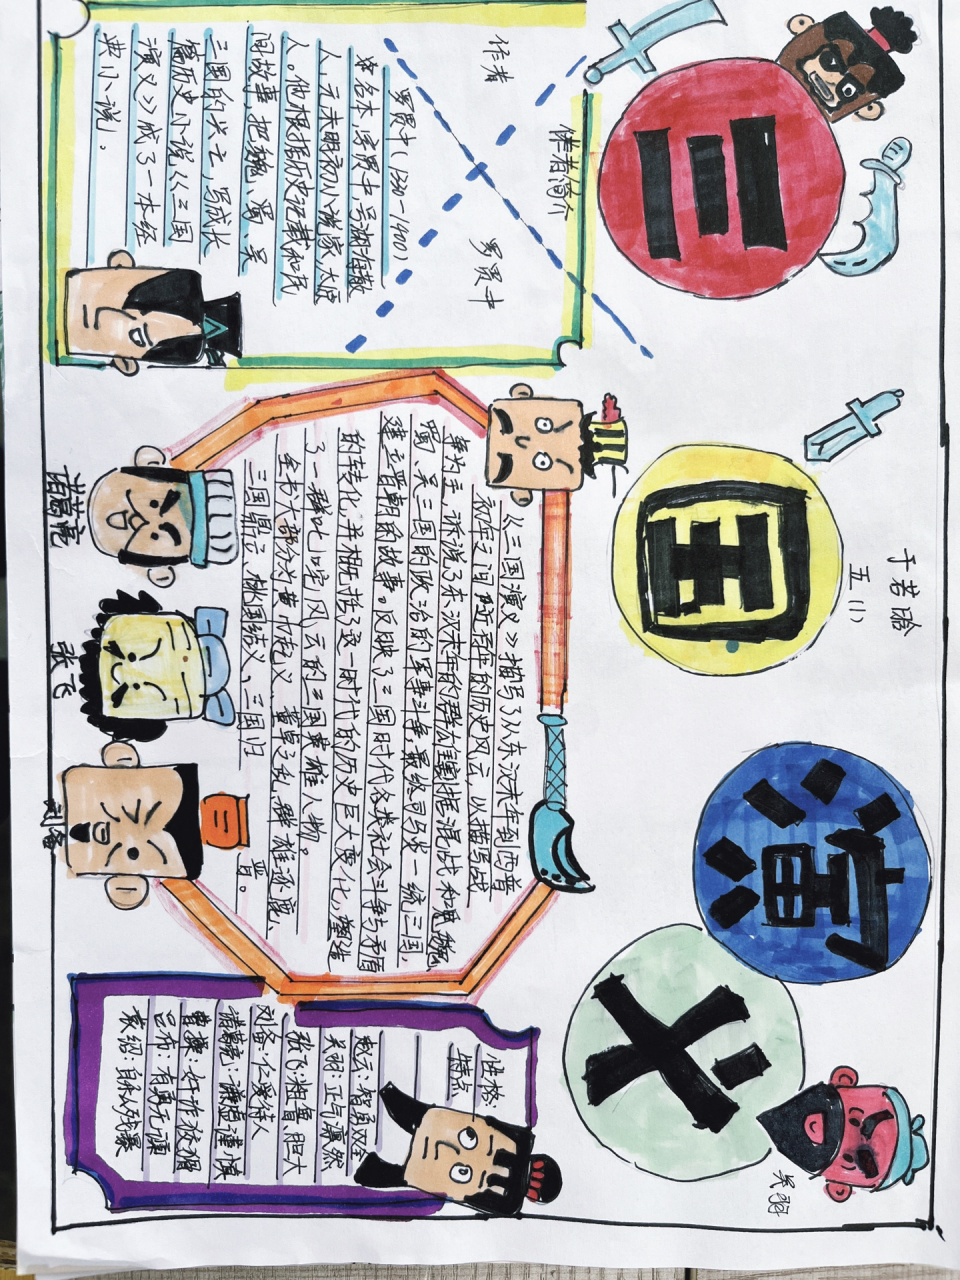 三国演义
于若晗
五(1)
作者简介
作者 罗贯中
罗贯中(1330-1400)
名本,字贯中,号湖海散
人,元末明初小说家,太原
人。他根据历史记载和民
间故事,把魏、蜀、吴
三国的兴亡,写成长
篇历史小说《三国
演义》成了一本经
典小说。
《三国演义》描写了从东汉末年到西晋
初年之间近百年的历史风云,以描写战
争为主,诉说了东汉末年的群雄割据混战和魏、
蜀、吴三国的政治的军事斗争,最终司马炎一统三国,
建立晋朝的故事。反映了三国时代各类社会斗争与矛盾
的转化,并概括了这一时代的历史巨大变化,塑造
了一群叱咤风云的三国英雄人物。
全书大部分为黄巾起义、董卓之乱,群雄逐鹿、
三国鼎立、桃园结义、三国归
晋。
诸葛亮
张飞
刘备
性格:
特点
赵云:智勇双全
关羽:正气凛然
张飞:粗鲁、胆大
刘备:仁爱待人
诸葛亮:谦逊谨慎
曹操:奸诈狡猾
吕布:有勇无谋
袁绍:自私残暴
关羽